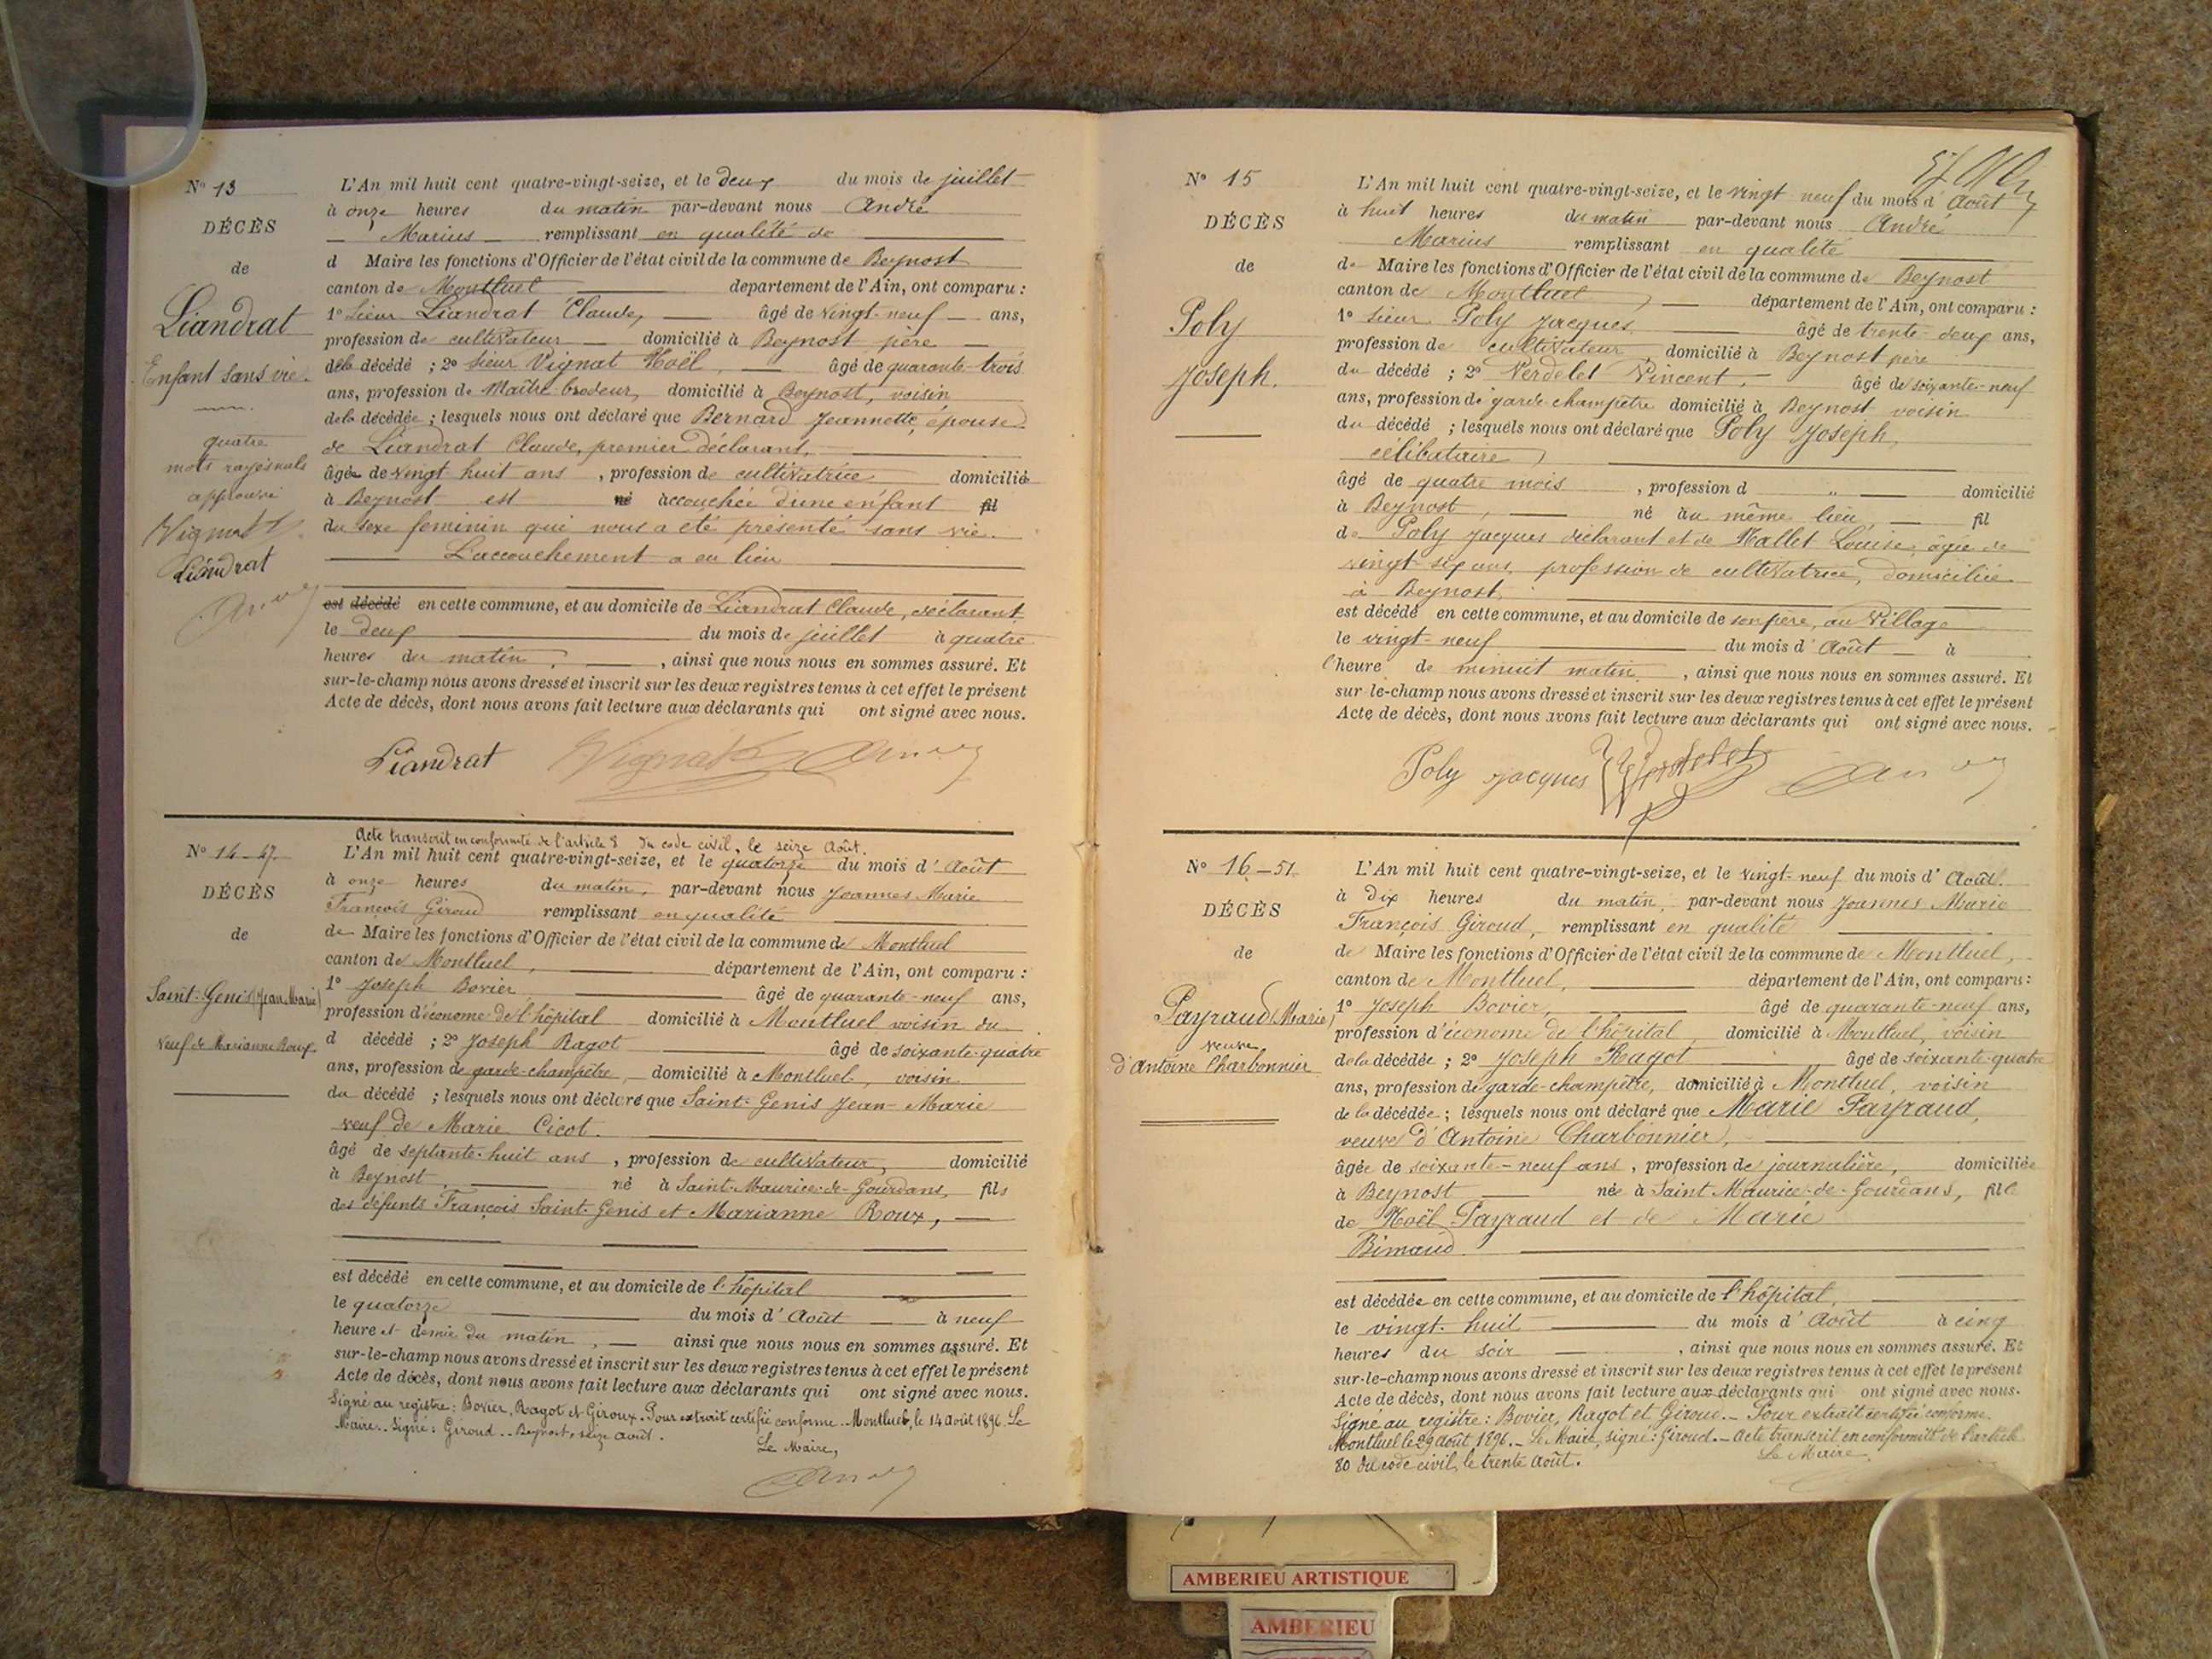 N° 13
DÉCÈS
de
Liandrat
Enfant sans vie.
quatre
mots rayés nuls
approuvé
Vignat
Liandrat
L'An mil huit cent quatre-vingt-seize, et le deux du mois de juillet
à onze heures du matin par-devant nous André
Marius remplissant en qualité de
d Maire les fonctions d'Officier de l'état civil de la commune de Beynost
canton de Montluel departement de l'Ain, ont comparu :
1° Sieur Liandrat Claude, âgé de vingt-neuf ans,
profession de cultivateur domicilié à Beynost père
de la décédé ; 2° Sieur Vignat Noël, âgé de quarante-trois
ans, profession de Maître-brodeur, domicilié à Beynost, voisin
de la décédée ; lesquels nous ont déclaré que Bernard Jeannette, épouse
de Liandrat Claude, premier déclarant,
âgée de vingt huit ans , profession de cultivatrice domiciliée
à Beynost est né accouchée d'une enfant fil
du sexe feminin qui nous a été présenté sans vie.
L'accouchement a eu lieu
est décédé en cette commune, et au domicile de Liandrat Claude, déclarant
le deux du mois de juillet à quatre
heures du matin , ainsi que nous nous en sommes assuré. Et
sur-le-champ nous avons dressé et inscrit sur les deux registres tenus à cet effet le présent
Acte de décès, dont nous avons fait lecture aux déclarants qui ont signé avec nous.
Liandrat Vignat
N° 14-47.
DÉCÈS
de
Saint-Genis (Jean-Marie)
Veuf de Marianne Roux.
Acte transcrit en conformité de l'article 8 du code civil, le seize Août.
L'An mil huit cent quatre-vingt-seize, et le quatorze du mois d'Août
à onze heures du matin, par-devant nous Joannes Marie
François Giroud remplissant en qualité
de Maire les fonctions d'Officier de l'état civil de la commune de Montluel
canton de Montluel, département de l'Ain, ont comparu :
1° Joseph Bovier âgé de quarante-neuf ans,
profession d'économe de l'hôpital domicilié à Montluel voisin du
d décédé ; 2° Joseph Ragot âgé de soixante-quatre
ans, profession de garde-champêtre, domicilié à Montluel, voisin
du décédé ; lesquels nous ont déclaré que Saint-Genis Jean-Marie
veuf de Marie Cicot.
âgé de septante-huit ans , profession de cultivateur, domicilié
à Beynost, né à Saint-Maurice-de-Gourdans, fils
des défunts François Saint-Genis et Marianne Roux,
est décédé en cette commune, et au domicile de l'hôpital
le quatorze du mois d'Août à neuf
heure et demie du matin, ainsi que nous nous en sommes assuré. Et
sur-le-champ nous avons dressé et inscrit sur les deux registres tenus à cet effet le présent
Acte de décès, dont nous avons fait lecture aux déclarants qui ont signé avec nous.
Signé au registre : Bovier, Ragot et Giroux. Pour extrait certifié conforme. Montluel, le 14 août 1896. Le
Maire. Signé : Giroud. Beynost, seize août.
Le Maire,
N° 15
DÉCÈS
de
Poly
Joseph.
L'An mil huit cent quatre-vingt-seize, et le vingt neuf du mois d'Août
à huit heures du matin par-devant nous André
Marius remplissant en qualité
de Maire les fonctions d'Officier de l'état civil de la commune de Beynost
canton de Montluel, département de l'Ain, ont comparu :
1° Sieur Poly Jacques âgé de trente-deux ans,
profession de cultivateur, domicilié à Beynost père
du décédé ; 2° Verdelet Vincent, âgé de soixante-neuf
ans, profession de garde-champêtre domicilié à Beynost voisin
du décédé ; lesquels nous ont déclaré que Poly Joseph,
célibataire,
âgé de quatre mois , profession d " domicilié
à Beynost, né au même lieu, fil
de Poly Jacques déclarant et de Mallet Louise, âgée de
vingt-six ans, profession de cultivatrice, domiciliée
à Beynost,
est décédé en cette commune, et au domicile de son père, au Village
le vingt-neuf du mois d'Août à
l'heure de minuit matin , ainsi que nous nous en sommes assuré. Et
sur-le-champ nous avons dressé et inscrit sur les deux registres tenus à cet effet le présent
Acte de décès, dont nous avons fait lecture aux déclarants qui ont signé avec nous.
Poly Jacques Verdelet
N° 16-51
DÉCÈS
de
Payraud (Marie)
veuve
d'Antoine Charbonnier
L'An mil huit cent quatre-vingt-seize, et le vingt-neuf du mois d'Août.
à dix heures du matin, par-devant nous Joannes Marie
François Giroud, remplissant en qualité
de Maire les fonctions d'Officier de l'état civil de la commune de Montluel,
canton de Montluel, département de l'Ain, ont comparu :
1° Joseph Bovier, âgé de quarante-neuf ans,
profession d'économe de l'hôpital, domicilié à Montluel, voisin
de la décédée ; 2° Joseph Ragot âgé de soixante-quatre
ans, profession de garde-champêtre, domicilié à Montluel, voisin
de la décédée ; lesquels nous ont déclaré que Marie Payraud,
veuve d'Antoine Charbonnier,
âgée de soixante-neuf ans , profession de journalière, domiciliée
à Beynost née à Saint Maurice-de-Gourdans, fille
de Noël Payraud et de Marie
Bimaud.
est décédée en cette commune, et au domicile de l'hôpital,
le vingt-huit du mois d'Août à cinq
heures du soir , ainsi que nous nous en sommes assuré. Et
sur-le-champ nous avons dressé et inscrit sur les deux registres tenus à cet effet le présent
Acte de décès, dont nous avons fait lecture aux déclarants qui ont signé avec nous.
Signé au registre : Bovier, Ragot et Giroud. Pour extrait certifié conforme.
Montluel le 29 août 1896. Le Maire, signé : Giroud. Acte transcrit en conformité de l'article
80 du code civil, le trente Août.
Le Maire
AMBERIEU ARTISTIQUE
AMBERIEU